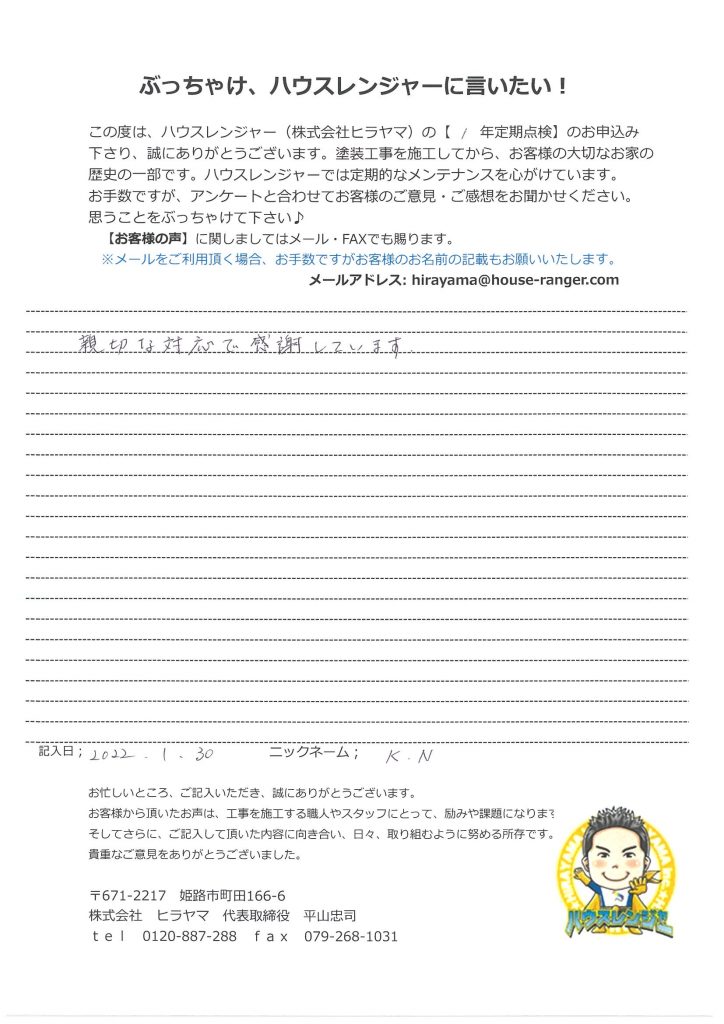 ぶっちゃけ、ハウスレンジャーに言いたい！
この度は、ハウスレンジャー（株式会社ヒラヤマ）の【 1 年定期点検】のお申込み
下さり、誠にありがとうございます。塗装工事を施工してから、お客様の大切なお家の
歴史の一部です。ハウスレンジャーでは定期的なメンテナンスを心がけています。
お手数ですが、アンケートと合わせてお客様のご意見・ご感想をお聞かせください。
思うことをぶっちゃけて下さい♪
【お客様の声】に関しましてはメール・FAXでも賜ります。
※メールをご利用頂く場合、お手数ですがお客様のお名前の記載もお願いいたします。
メールアドレス: hirayama@house-ranger.com
親切な対応で感謝しています.
記入日； 2022 . 1 . 30 ニックネーム； K . N
お忙しいところ、ご記入いただき、誠にありがとうございます。
お客様から頂いたお声は、工事を施工する職人やスタッフにとって、励みや課題になります
そしてさらに、ご記入して頂いた内容に向き合い、日々、取り組むように努める所存です。
貴重なご意見をありがとうございました。
〒671-2217　姫路市町田166-6
株式会社　ヒラヤマ　代表取締役　平山忠司
ｔｅｌ　0120-887-288　ｆａｘ　079-268-1031
ハウスレンジャー